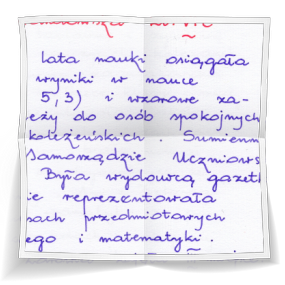 lata nauki osiągała
wyniki w nauce
5,3) i wzorowe za-
eży do osób spokojnych
koleżeńskich. Sumienn
Samorządzie Uczniows
Była wydawcą gazetk
ie reprezentowała
sach przedmiotowych
ego i matematyki.